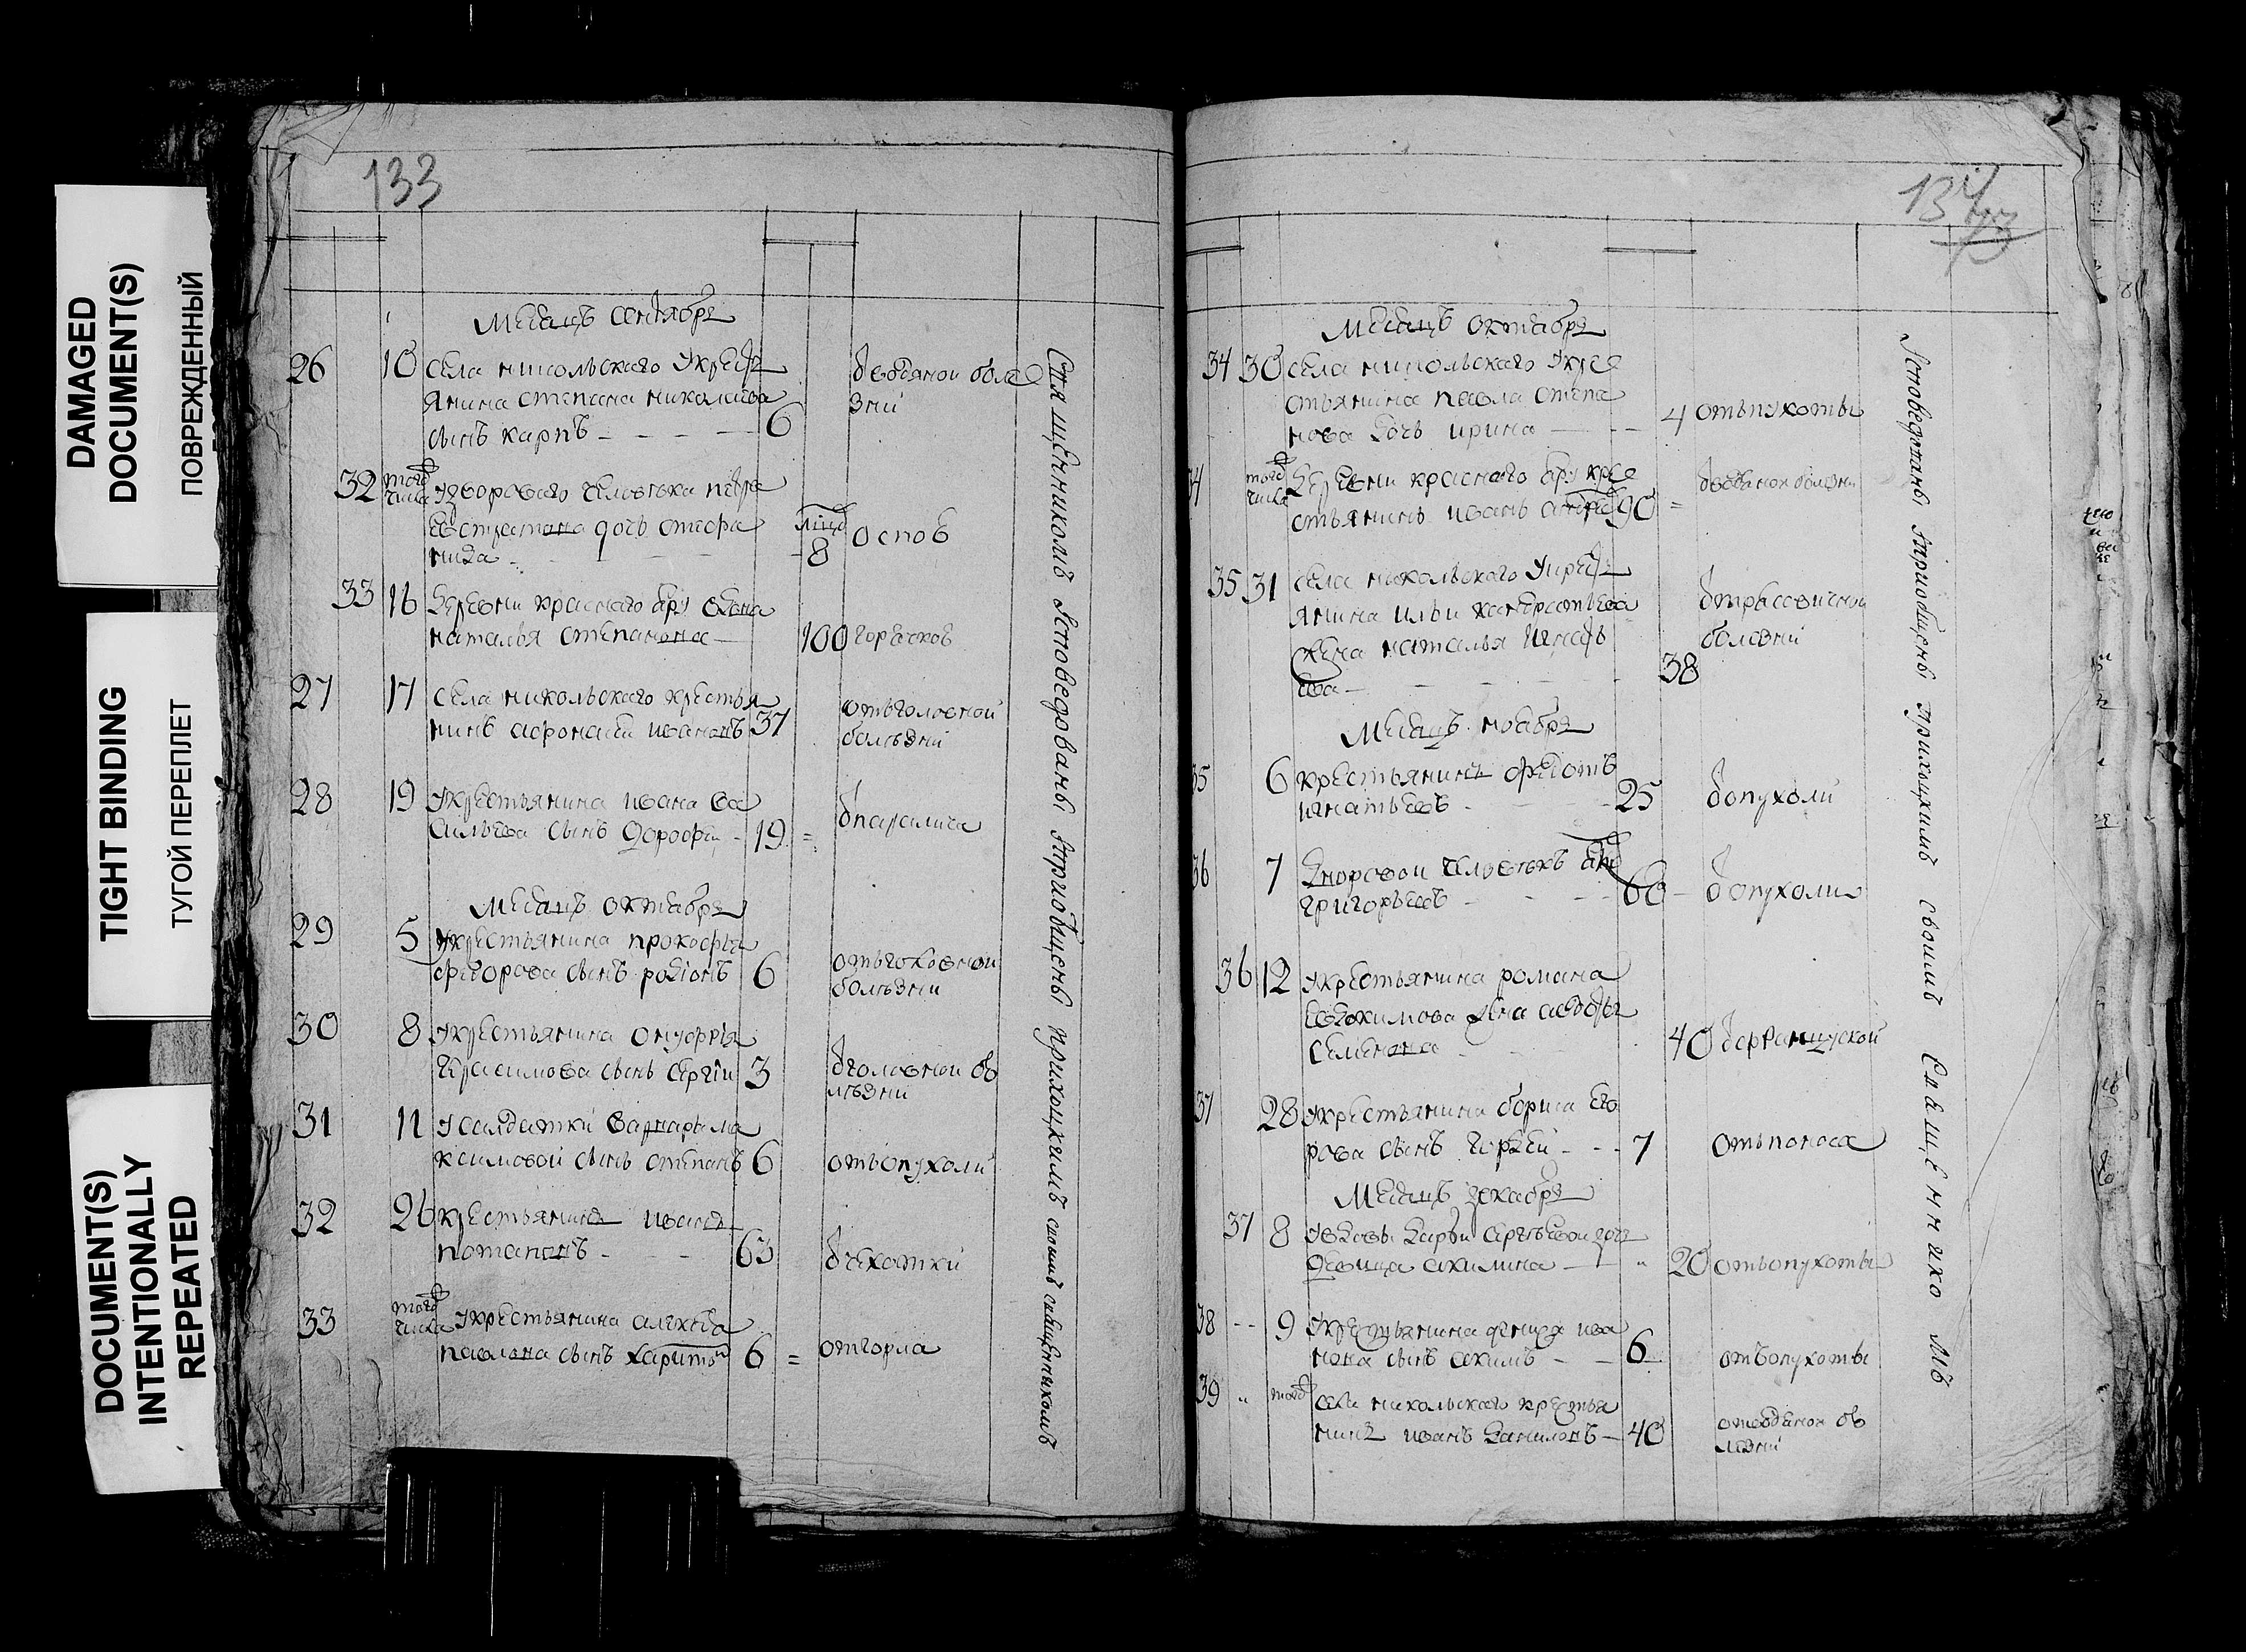 DAMAGED
DOCUMENT(S)
ПОВРЕЖДЕННЫЙ
TIGHT BINDING
ТУГОЙ ПЕРЕПЛЕТ
DOCUMENT(S)
INTENTIONALLY
REPEATED
133
Месяцъ сентября
26 10 села никольскаго укрестъ
янина степана николаева
сынъ карпъ 6
32 того числа удвороваго человека петра
дочь стефа
нида 8 оспов
33 16 деревни краснаго вдова
наталья степанова 100 горячков
27 17 села никольскаго крестья
нинъ афонасей ивановъ 37 отъголовной
болъзни
28 19 укрестьянина ивана ва
сильева сынъ дорофеи 19 = паралича
Месяцъ октября
29 5 укрестьянина прокофья
федорова сынъ родионъ 6
болъзни
30 8 укрестьянина онуфрия
герасимова сынъ сергiи 3 головнои бо
лъзни
31 11 усалдатки варвары ма
ксимовой сынъ степанъ 6 отъопухоли
32 26 крестьянинъ иванъ
потаповъ 63 чехотки
33 того числа укрестьянина алексея
павлова сынъ харитон 6 = отгорла
исповедованы приобщены прихоцкимъ своимъ священникомъ
134
Месяцъ октября
34 30 села никольскаго укре
стьянина павла степа
нова дочь ирина 4
34 того числа деревни краснаго кре
стьянинъ иванъ 90 =
35 31 села никольского укресть
янина ильи кондратьева
жена наталья игнать
ева 38
болезни
Месяцъ ноября
35 6 крестьянинъ федотъ
игнатьевъ 25 опухоли
36 7 дворовои человекъ
григорьевъ 60 опухоли
36 12 укрестьянина романа
евдокимова жена авдотья
семенова 40 францускои
37 28 укрестьянина бориса его
рова сынъ гордей 7 отъпоноса
Месяцъ декабря
37 8 увдовы дарьи сергъевои дочь
девица акилина 20 отъопухоты
38 9 укрестьянина дениса ива
нова сынъ акимъ 6 отъопухоты
39 того села никольскаго крестья
нинъ иванъ даниловъ 40 отводяной бо
лезни
исповеданы приобщены прихоцкимъ своимъ священникомъ